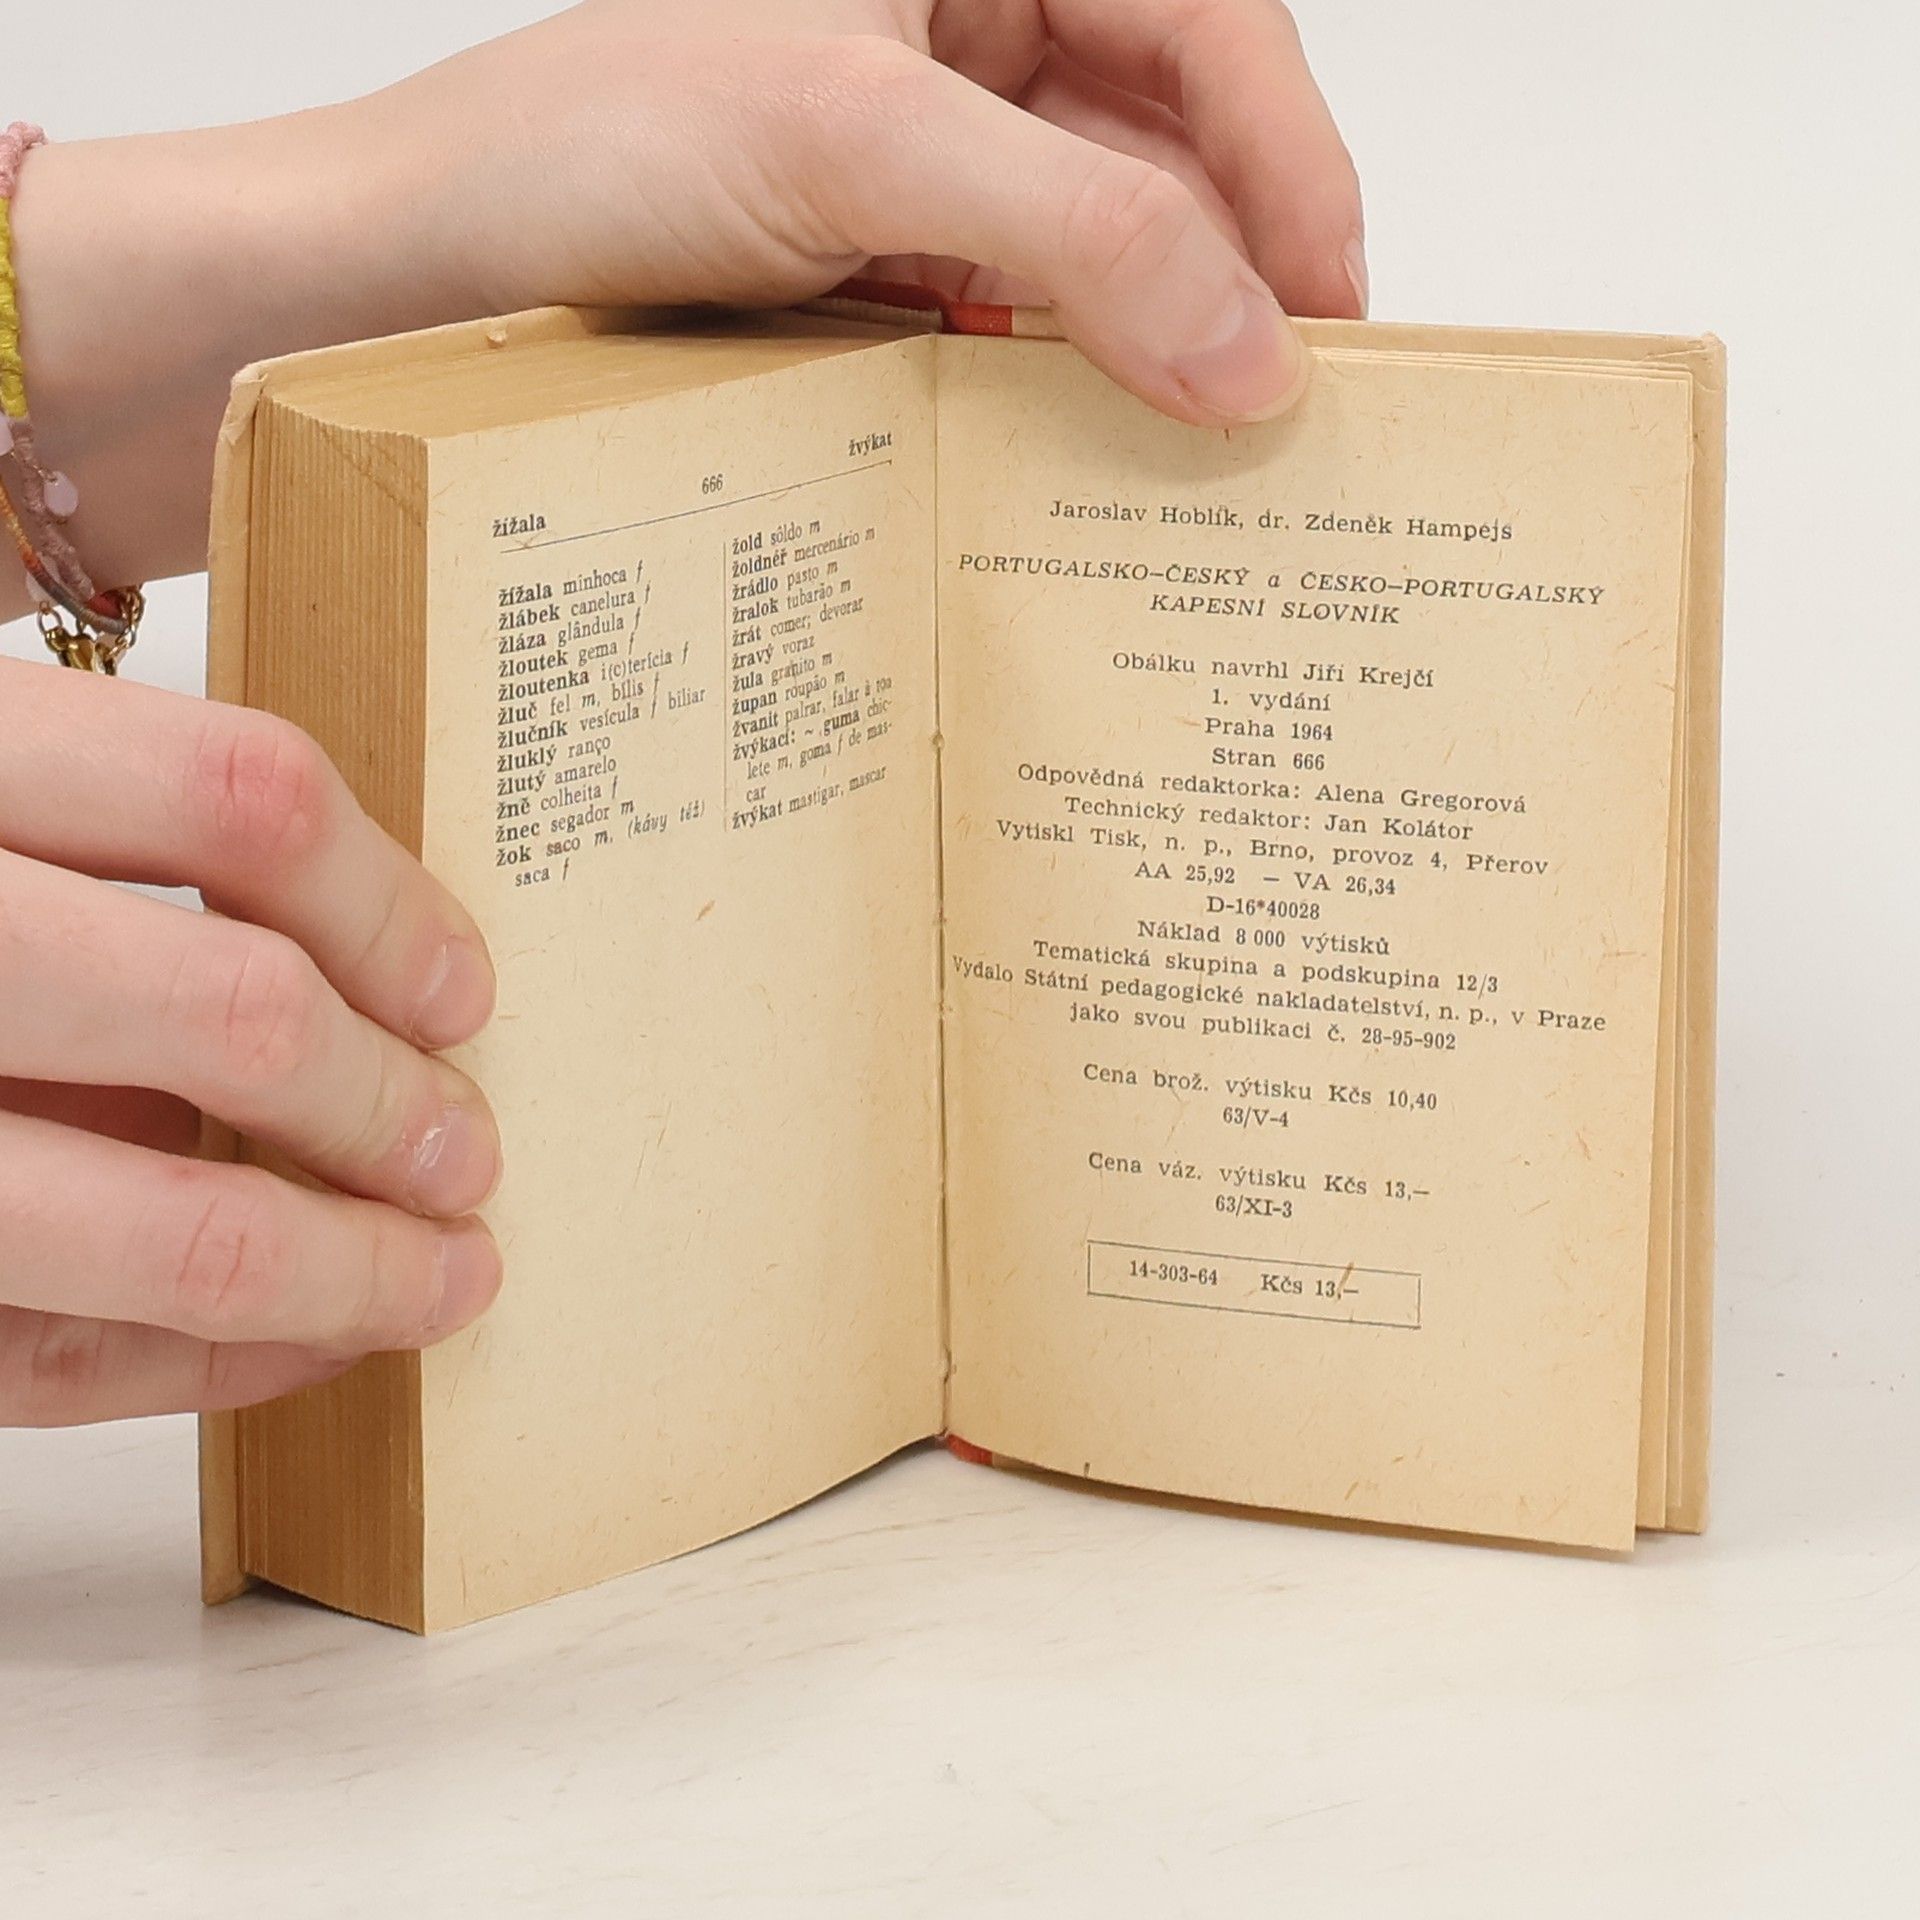 žížala
666
žvýkat
žížala minhoca f
žlábek canelura f
žláza glândula f
žloutek gema f
žloutenka i(c)terícia f
žluč fel m, bílis f
žlučník vesícula f biliar
žluklý ranço
žlutý amarelo
žně colheita f
žnec segador m
žok saco m, (kávy též)
saca f
žold sôldo m
žoldnéř mercenário m
žrádlo pasto m
žralok tubarão m
žrát comer; devorar
žravý voraz
žula granito m
župan roupão m
žvanit palrar, falar à toa
žvýkací: ~ guma chic-
lete m, goma f de mas-
car
žvýkat mastigar, mascar
Jaroslav Hoblík, dr. Zdeněk Hampejs
PORTUGALSKO–ČESKÝ a ČESKO–PORTUGALSKÝ
KAPESNÍ SLOVNÍK
Obálku navrhl Jiří Krejčí
1. vydání
Praha 1964
Stran 666
Odpovědná redaktorka: Alena Gregorová
Technický redaktor: Jan Kolátor
Vytiskl Tisk, n. p., Brno, provoz 4, Přerov
AA 25,92 – VA 26,34
D-16*40028
Náklad 8 000 výtisků
Tematická skupina a podskupina 12/3
Vydalo Státní pedagogické nakladatelství, n. p., v Praze
jako svou publikaci č. 28-95-902
Cena brož. výtisku Kčs 10,40
63/V-4
Cena váz. výtisku Kčs 13,—
63/XI-3
14-303-64 Kčs 13,—